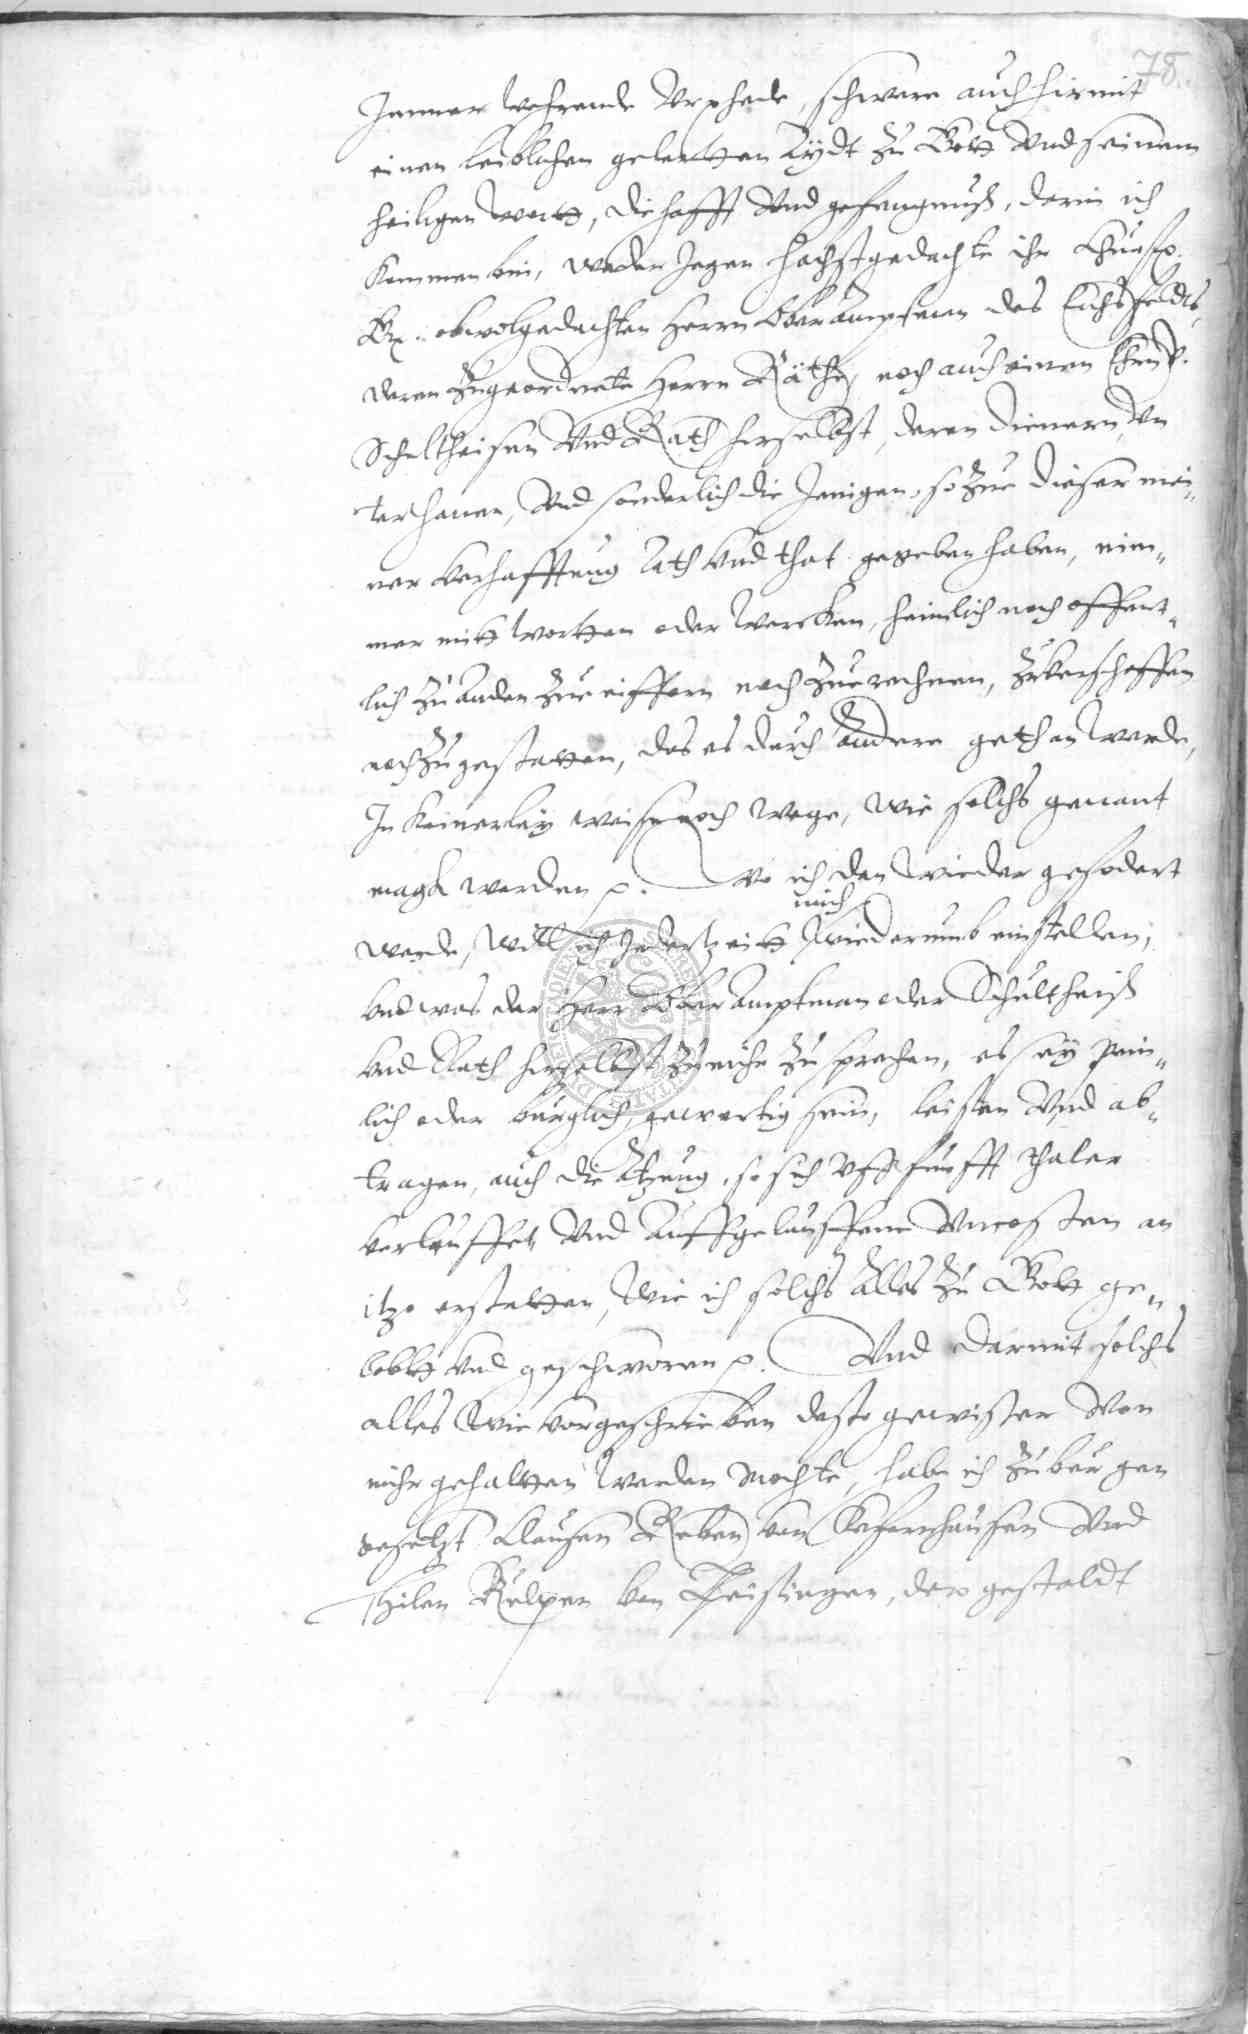 78.
Immer wehrende Urphede, schwere auch hirmit
einen leiblichen gelertten Eydt zu Gott Und seinem
heiligen wortt, die hafft Und gefengnuß, darin ich
kommen bin, weder Jegen hochstgedachte ihr Churf.
G. obwolgedachten Herrn Oberamptman des Eichsfeldts,
deren Zugeordnete Herrn Räthe, noch auch einen Ehrnv.
Scheltheisen Und Rath hirselbst, deren dienern Un
terthanen, Und sonderlich die Jenigen, so zue dieser mei„
ner verhafftung Rath Und that gegeben haben, nim„
mer mitt wortten oder wercken, heimlich noch offent„
lich zu anden zue eiffern noch zue rechnen, zuverschaffen
noch zugestatten, das es durch andere gethan werde,
In keinerley weise noch wege, wie solchs genant
magk werden p. Wo ich dan wieder gefodert
mich
werde, Will ich Jederzeitt wiederumb einstellen,
Und was der Herr Oberamptman oder Schultheiß
Und Rath hirselbst zu mihr zu sprechen, es sey pein„
lich oder burglich, gewertig sein, leisten Und ab„
tragen, auch die Atzung, so sich Uff funfft thaler
verlauffet Und Auffgelauffene Uncosten an
itzo erstatten, Wie ich solchs alles zu Gott ge„
lobtt Und geschworen p. Und darmit solchs
alles Wie vorgeschrieben desto gewisser Von
mihr gehalten werden mochte, habe ich zu burgen
gesetzt Clausen Reben von Kefernhausen Und
Thilen Kulpen von Geislingen, der gestaldt